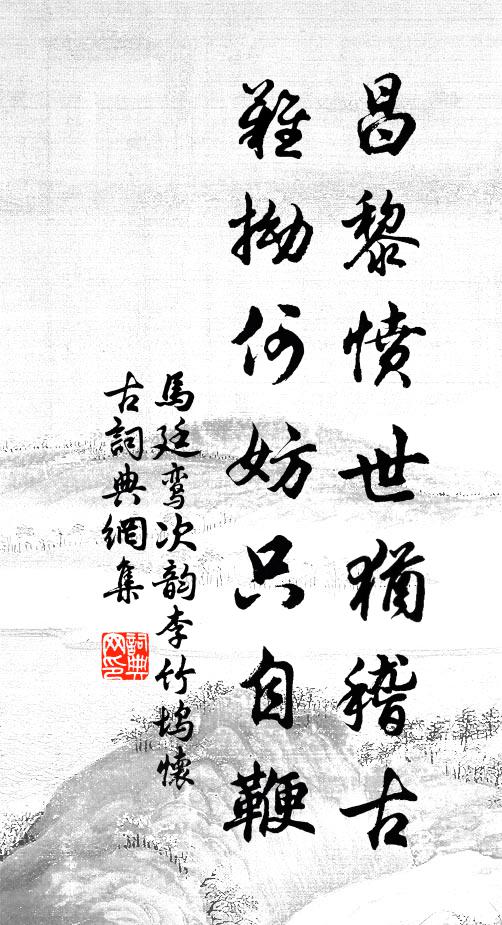 昌黎愤世犹稽古
难拗何妨只自鞭
馬廷鸾次韵李竹坞懷
古詞典網集
詞典
网印